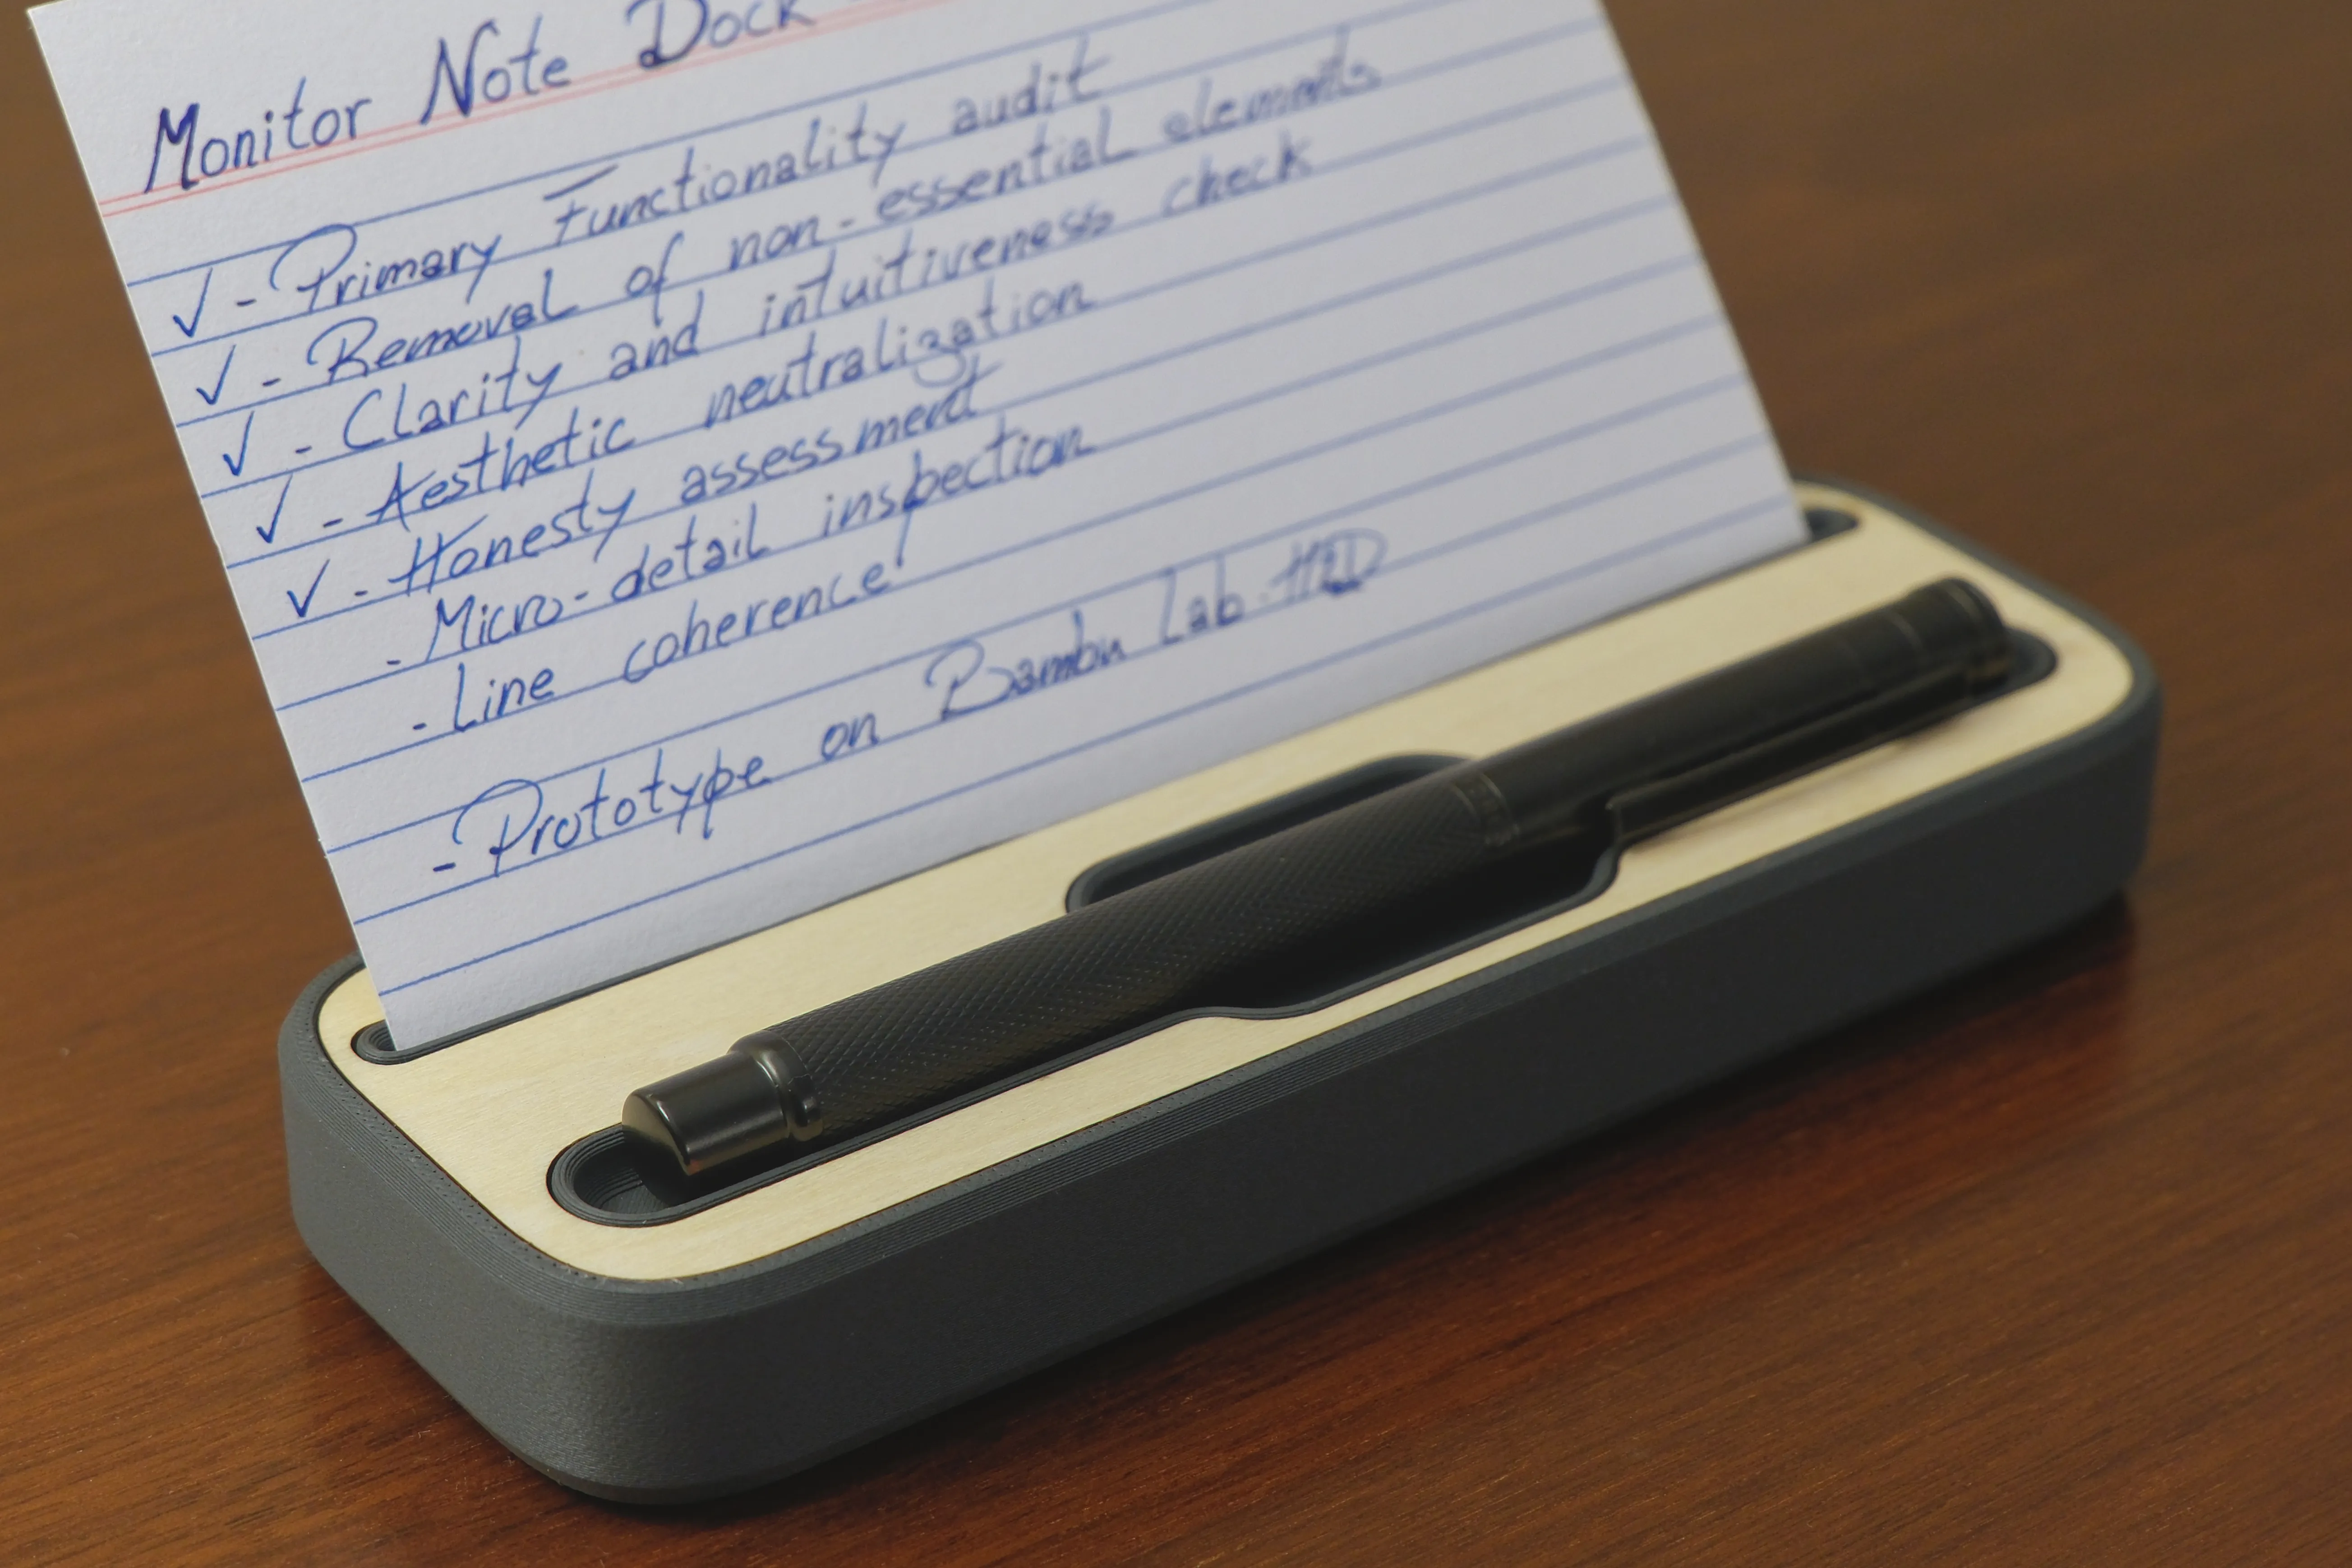 Monitor Note Dock
✓ - Primary Functionality audit
✓ - Removal of non-essential elements
✓ - Clarity and intuitiveness check
✓ - Aesthetic neutralization
✓ - Honesty assessment
- Micro-detail inspection
- Line coherence
- Prototype on Bambu Lab H2D